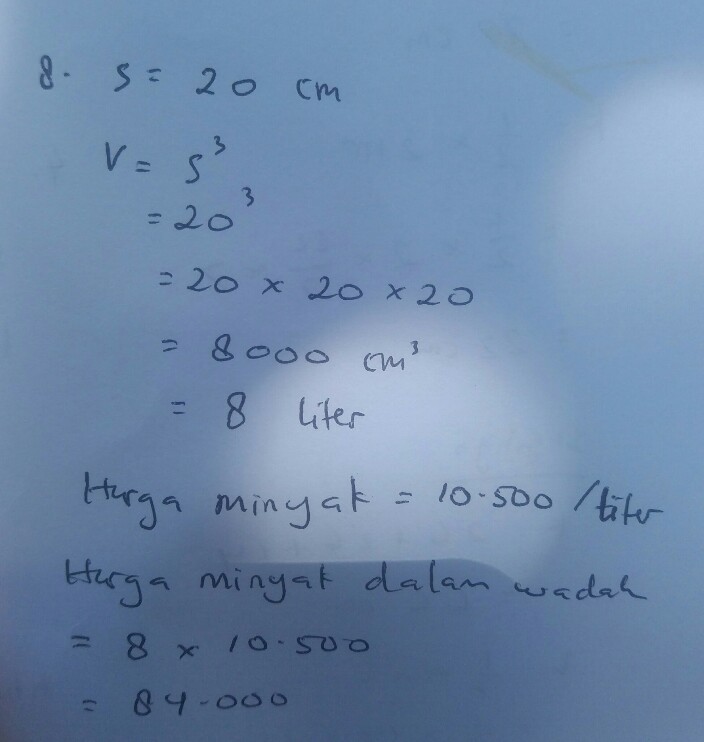 8. s = 20 cm
V = s³
= 20³
= 20 x 20 x 20
= 8000 cm³
= 8 liter
Harga minyak = 10.500 /liter
Harga minyak dalam wadah
= 8 x 10.500
= 84.000